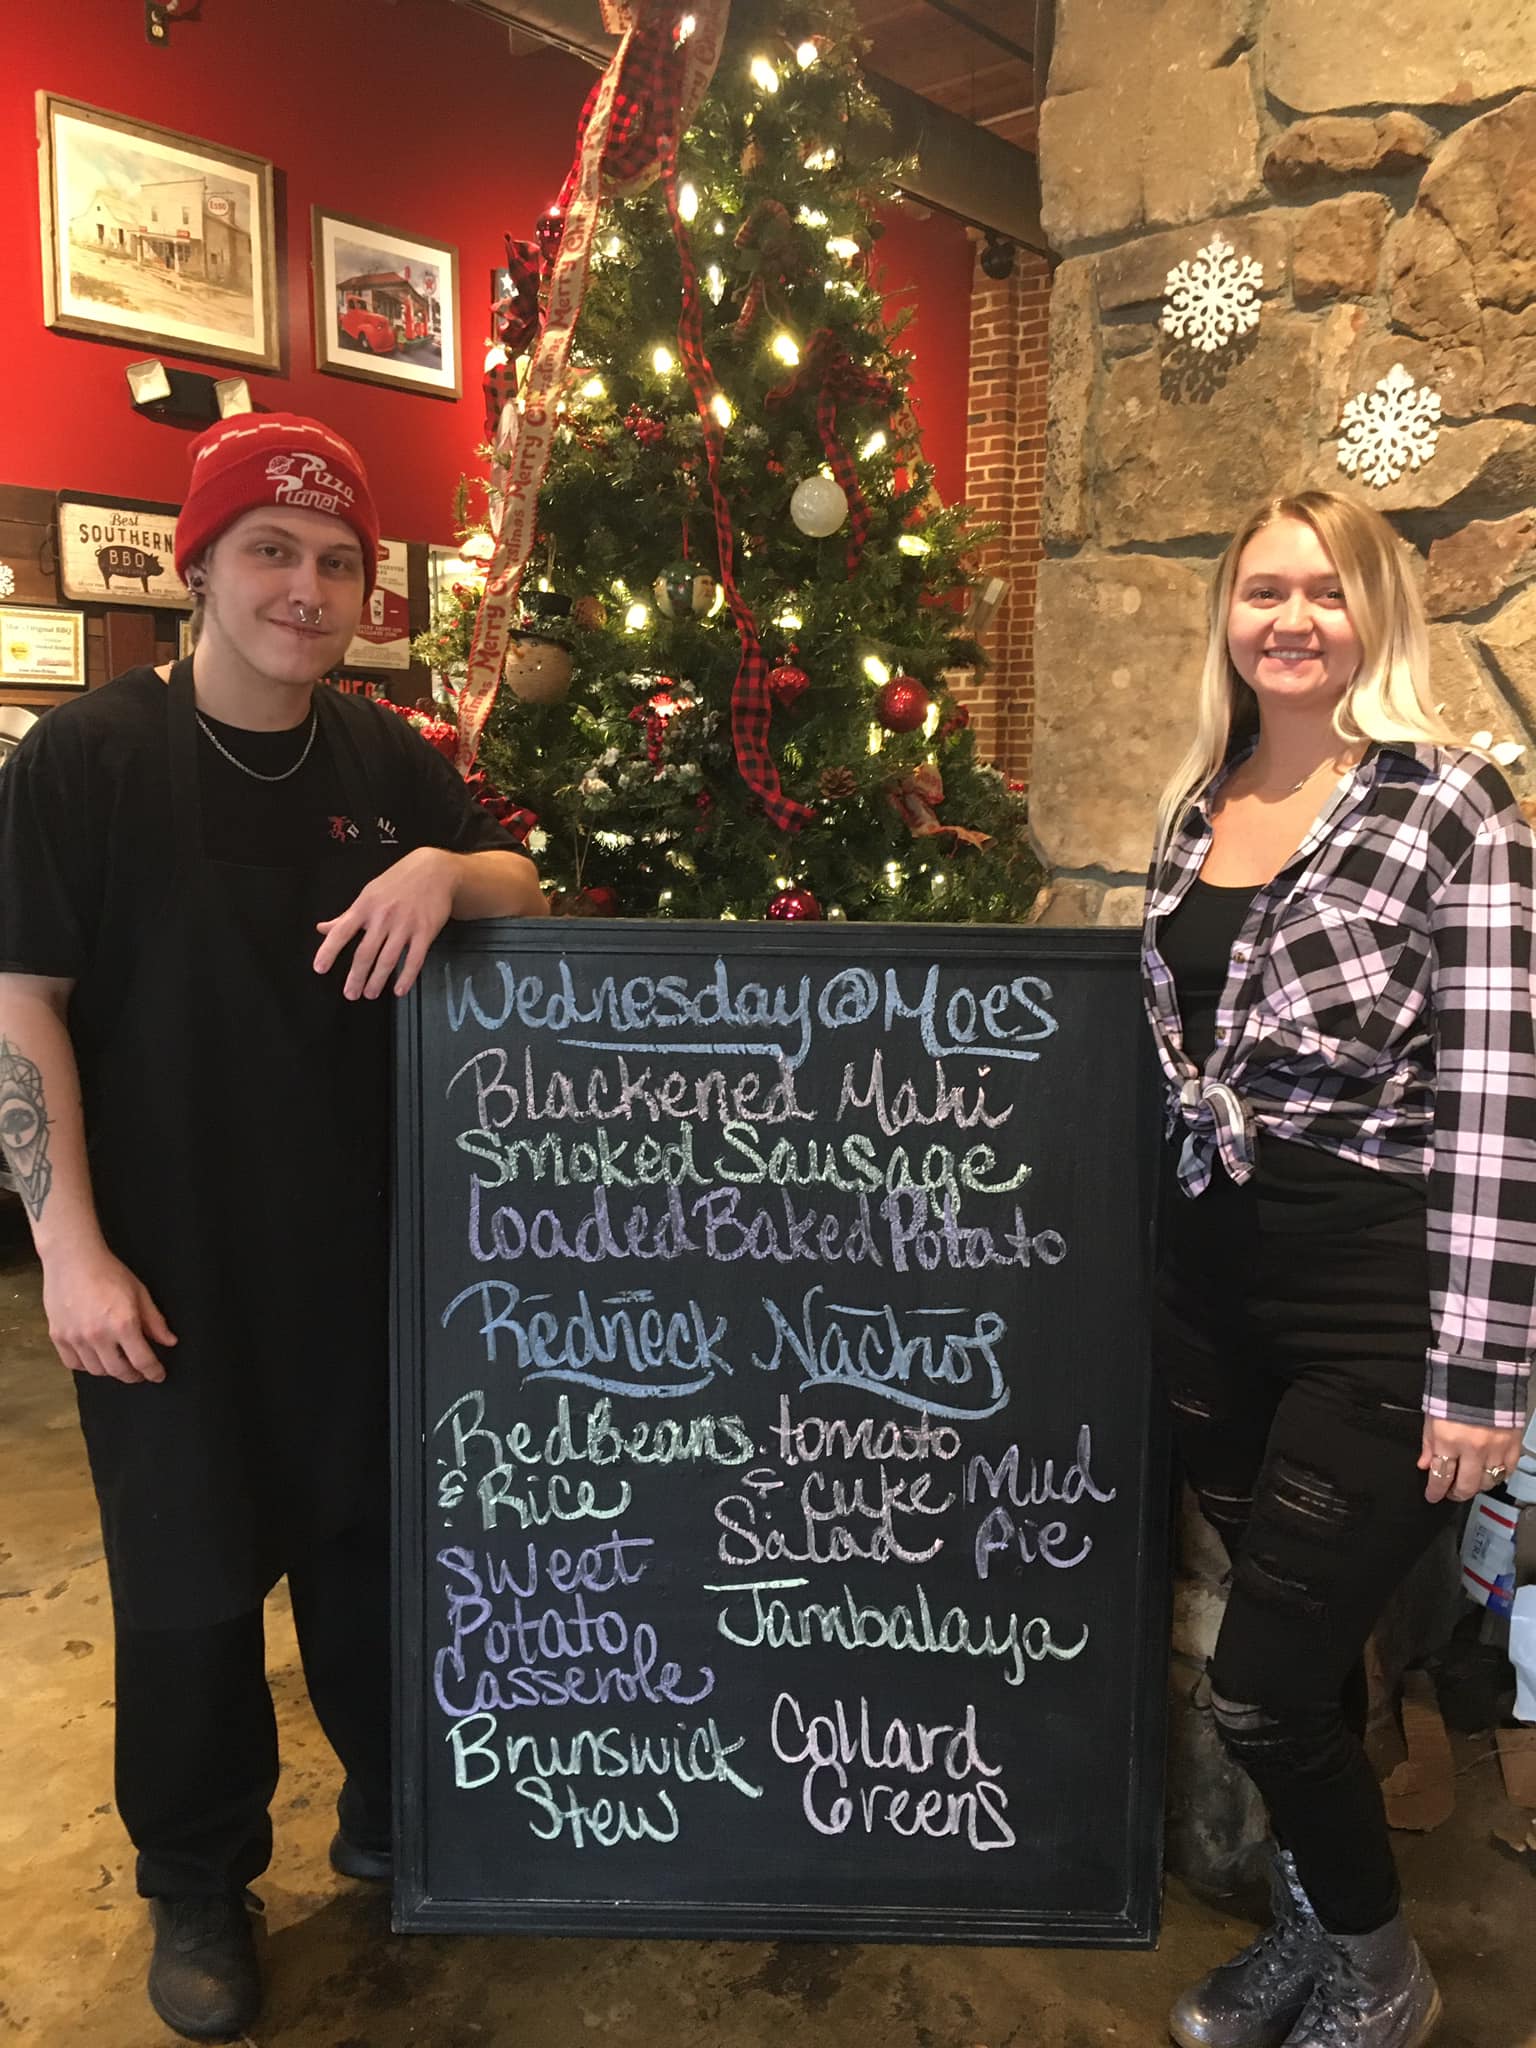 Esso
Pizza
Planet
Best
SOUTHERN
BBQ
Merry Christmas Merry Christmas Merry
Wednesday @ Moes
Blackened Mahi
Smoked Sausage
Loaded Baked Potato
Redneck Nachos
Red Beans
& Rice
tomato
& cuke
Salad
Mud
Pie
Sweet
Potato
Casserole
Jambalaya
Brunswick
Stew
Collard
Greens
ULTRA